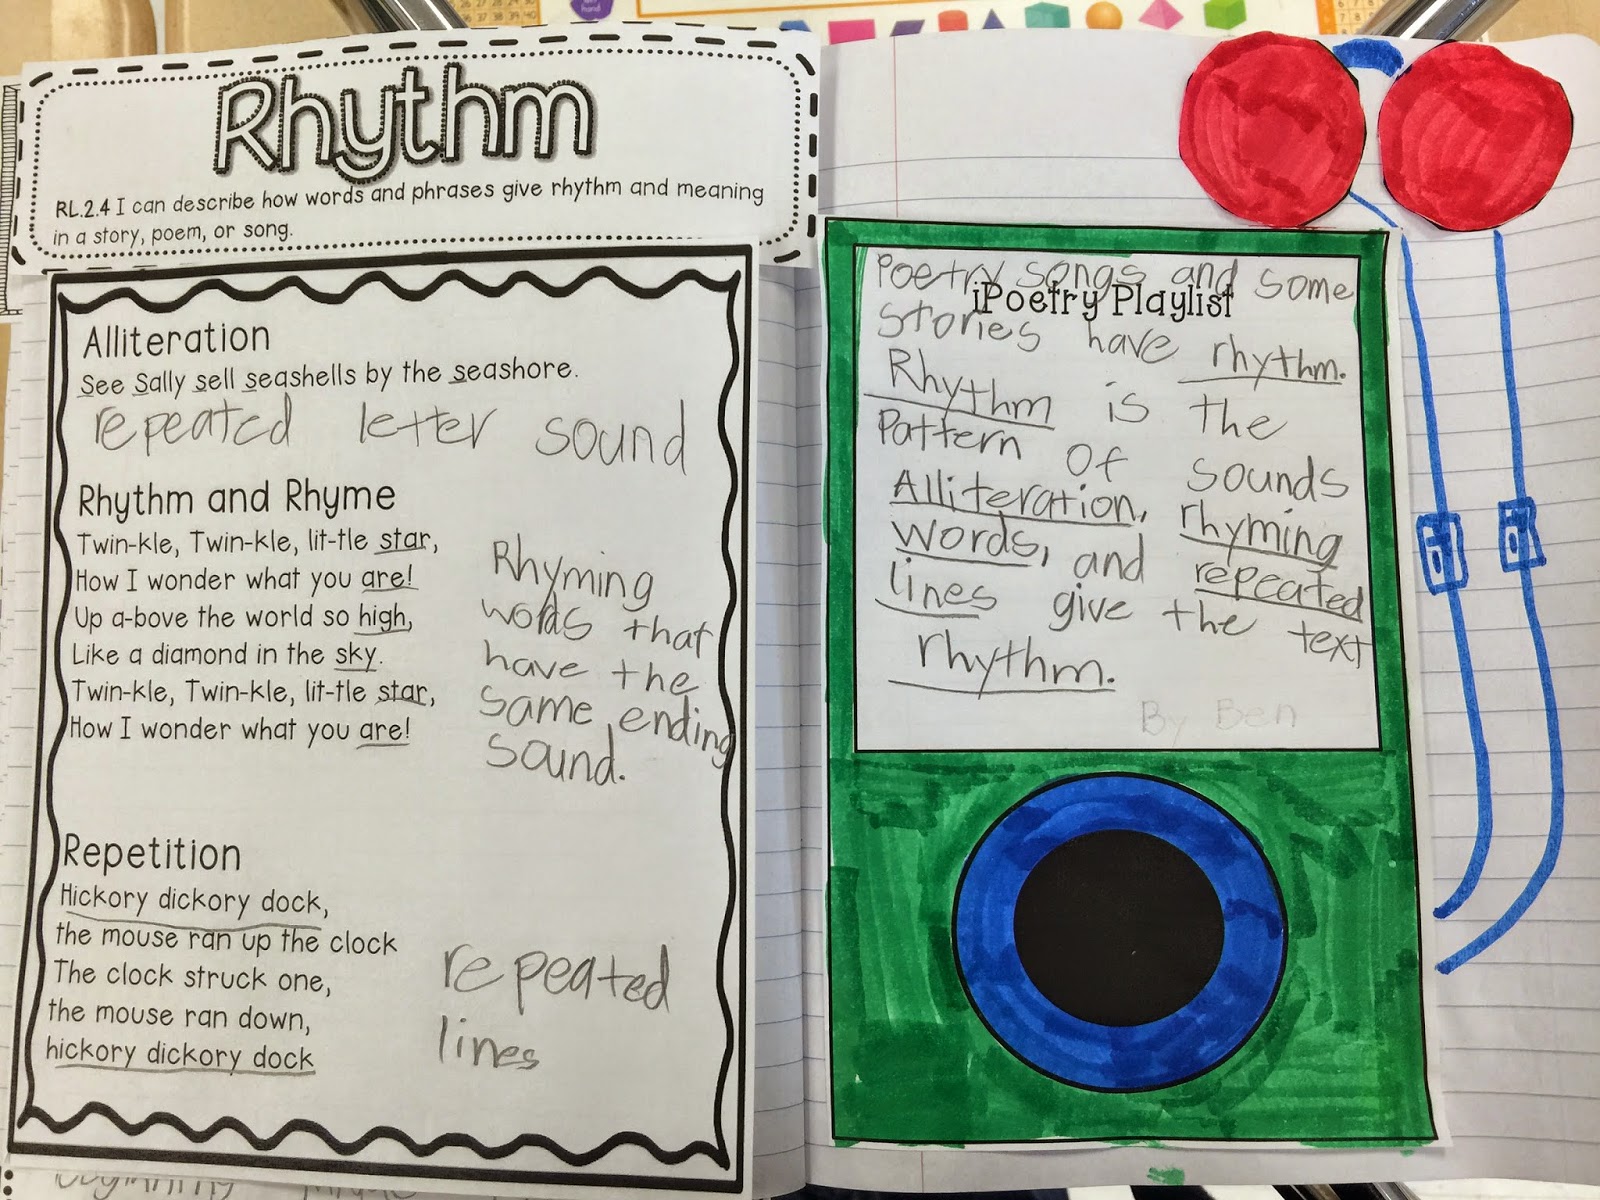 Rhythm
RL.2.4 I can describe how words and phrases give rhythm and meaning
in a story, poem, or song.
Alliteration
See Sally sell seashells by the seashore.
repeated letter sound
Rhythm and Rhyme
Twin-kle, Twin-kle, lit-tle star,
How I wonder what you are!
Up a-bove the world so high,
Like a diamond in the sky.
Twin-kle, Twin-kle, lit-tle star,
How I wonder what you are!
Rhyming
words that
have the
same ending
sound.
Repetition
Hickory dickory dock,
the mouse ran up the clock
The clock struck one,
the mouse ran down,
hickory dickory dock
repeated
lines
iPoetry Playlist
Poetry songs and some
stories have rhythm.
Rhythm is the
Pattern of sounds
Alliteration, rhyming
words, and repeated
lines give the text
rhythm.
By Ben